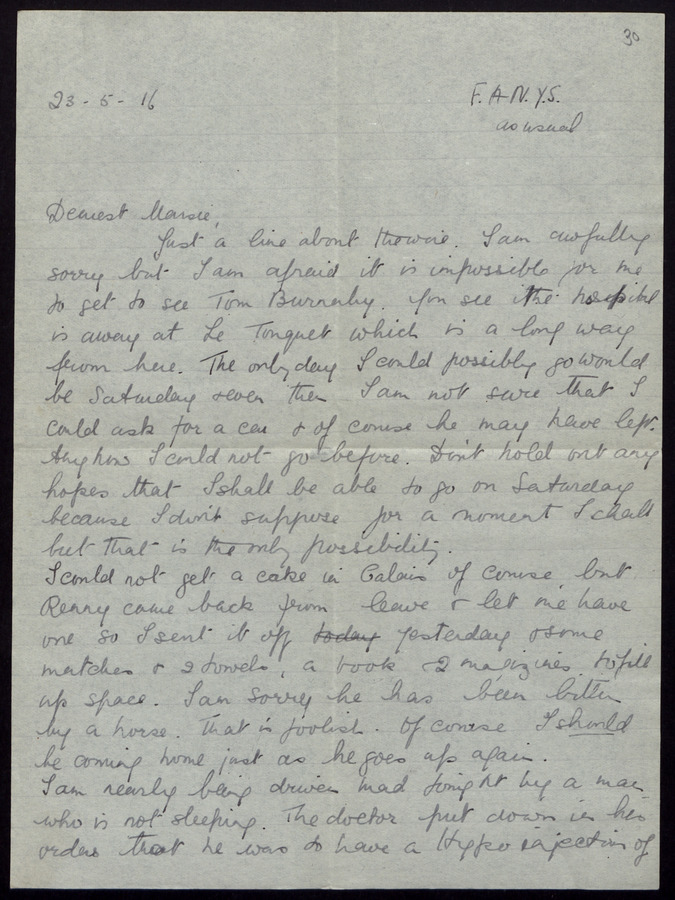 30
23-5-16
F.A.N.Y.S.
as usual
Dearest Marsie,
Just a line about the wire. I am awfully
sorry but I am afraid it is impossible for me
to get to see Tom Burnaby. You see the hospital
is away at Le Touquet which is a long way
from here. The only day I could possibly go would
be Saturday & even then I am not sure that I
could ask for a car & of course he may have left.
Anyhow I could not go before. Don't hold out any
hopes that I shall be able to go on Saturday
because I don't suppose for a moment I shall
but that is the only possibility.
I could not get a cake in Calais of course but
Renny came back from leave & let me have
one so I sent it off today yesterday & some
matches & 2 towels, a book & 2 magizines to fill
up space. I am sorry he has been bitten
by a horse. That is foolish. Of course I should
be coming home just as he goes up again.
I am nearly being driven mad tonight by a man
who is not sleeping. The doctor put down in his
orders that he was to have a Hypo injection of